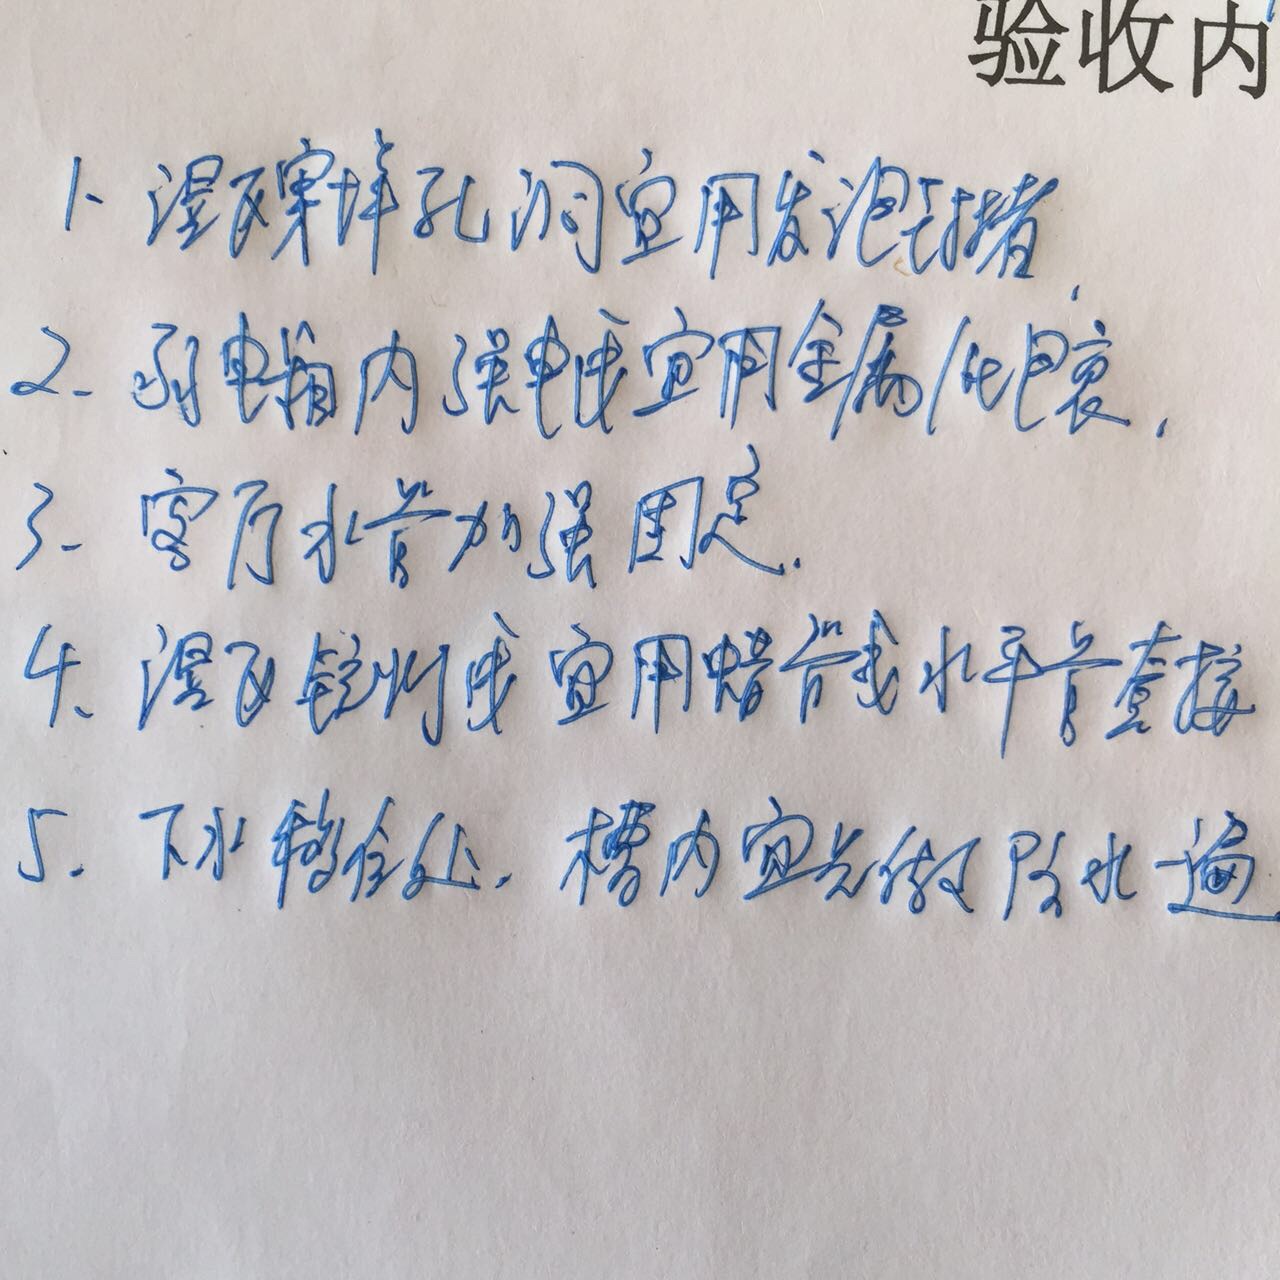 验收内
1. 湿区穿墙孔洞宜用发泡剂堵.
2. 弱电箱内强电线宜用金属/包裹.
3. 客厅水管加强固定.
4. 湿区镜灯线宜用蜡管或水平管套接
5. 下水移位处. 槽内宜先做防水一遍